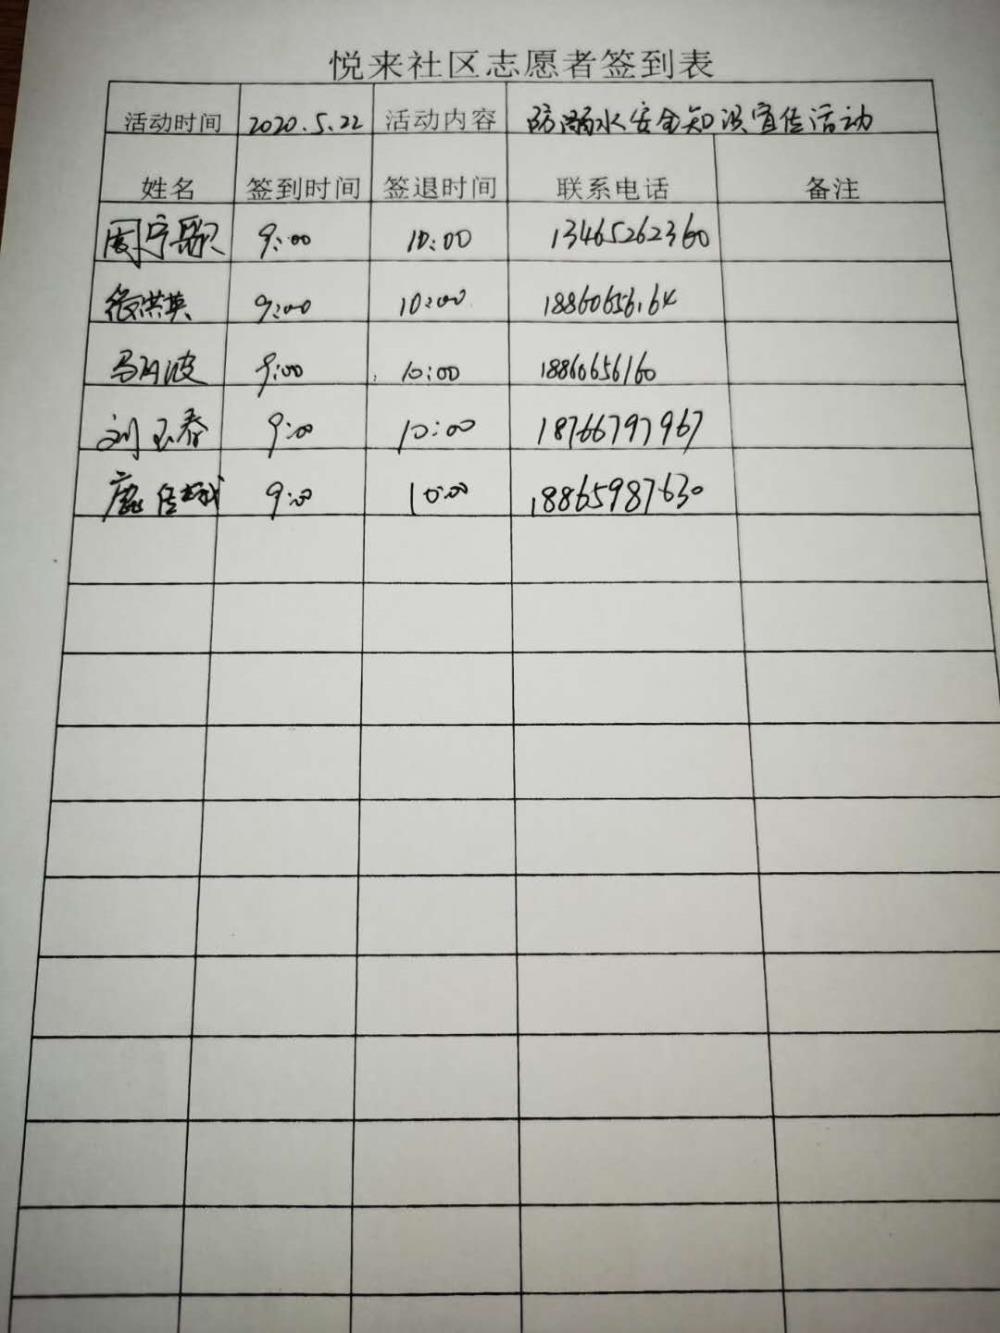 悦来社区志愿者签到表
活动时间 2020.5.22 活动内容 防溺水安全知识宣传活动
姓名 签到时间 签退时间 联系电话 备注
周宁歌 9:00 10:00 13465262360
徐洪英 9:00 10:00 18860656164
马 波 9:00 10:00 18860656160
刘玉春 9:00 10:00 18766797967
庞佳斌 9:00 10:00 18865987630